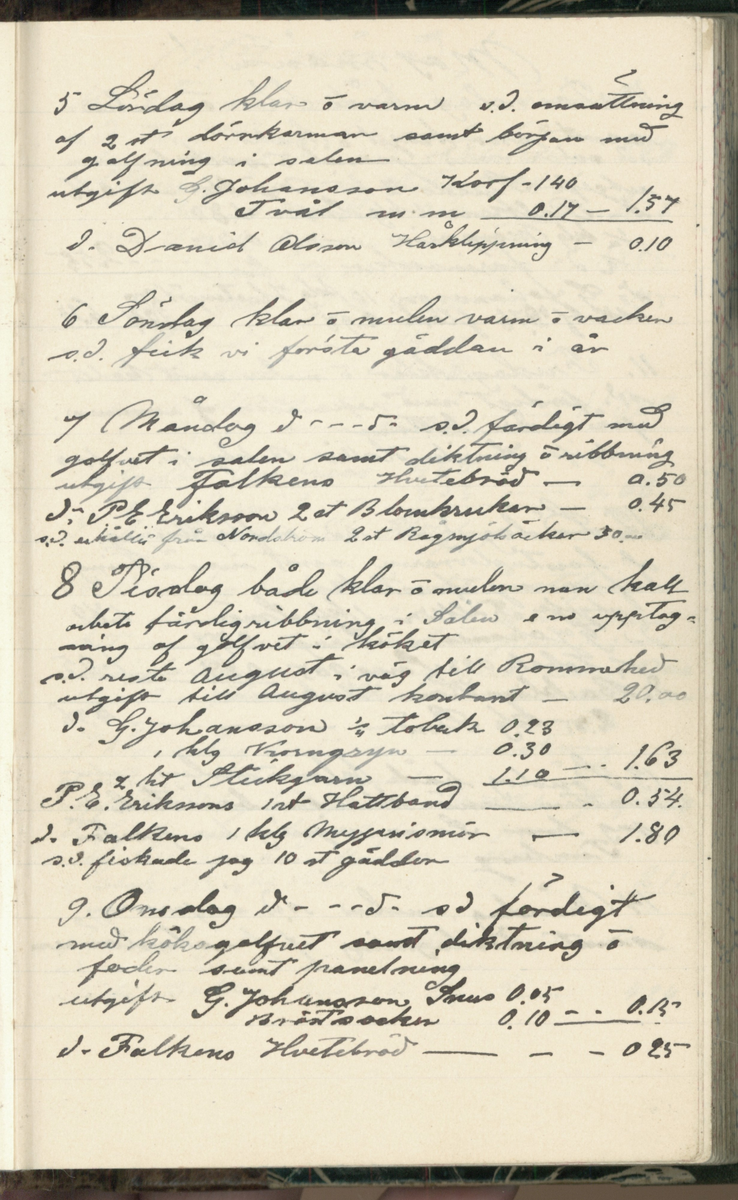 5 Lördag klar ō varm s.d. omsättning
af 2 st dörrkarmar samt början med
golfning i salen
utgift G. Johansson Korf - 1 40
Tvål m m 0.17 — 1.57
d- Daniel Olsson Hårklippning — 0.10
6 Söndag klar ō mulen varm ō vacker
s.d. fick vi första gäddan i år
7 Måndag d - - - d- s.d. färdigt med
golfvet i salen samt diktning ō ribbning
utgift Falkens Hvetebröd — 0.50
d- P E Eriksson 2 st Blomkrukor — 0.45
s.d. erhållit från Nordström 2 st Rågmjölsäcker
8 Tisdag både klar ō mulen men kall
arbete färdigribbning i Salen upptag-
ning af golfvet i köket
s.d. reste August i väg till Rommehed
utgift till August kontant — 20.00
d- G. Johansson ¼ tobak 0.23
1 klg Korngryn — 0.30
2 ht Stickgarn — 1.10 — - - 1.63
P. E. Erikssons 1 st Hattband — - 0.54.
d- Falkens 1 klg Meyerismör — 1.80
s.d. fiskade jag 10 st gäddor
9. Onsdag d - - - d- s d färdigt
med köksgolfvet samt diktning ō
foder samt panelning
utgift G. Johansson Snus 0.05
Bröstsocker 0.10 — - - 0.15
d- Falkens Hvetebröd — - - 0 25